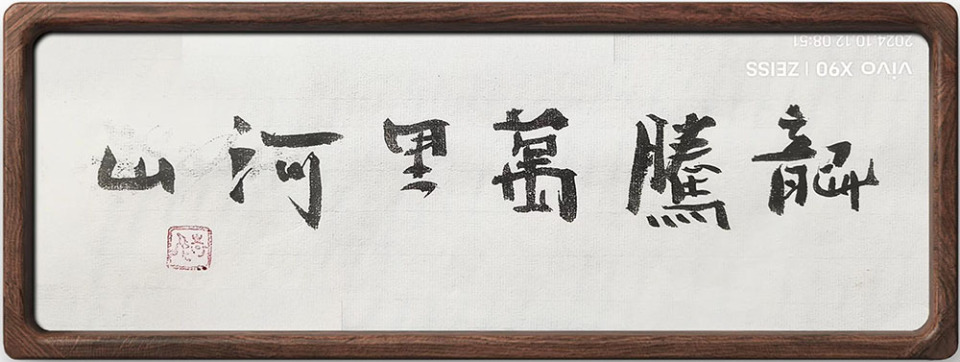 龍騰萬里河山
vivo X90 | ZEISS
2024.10.12 08:51